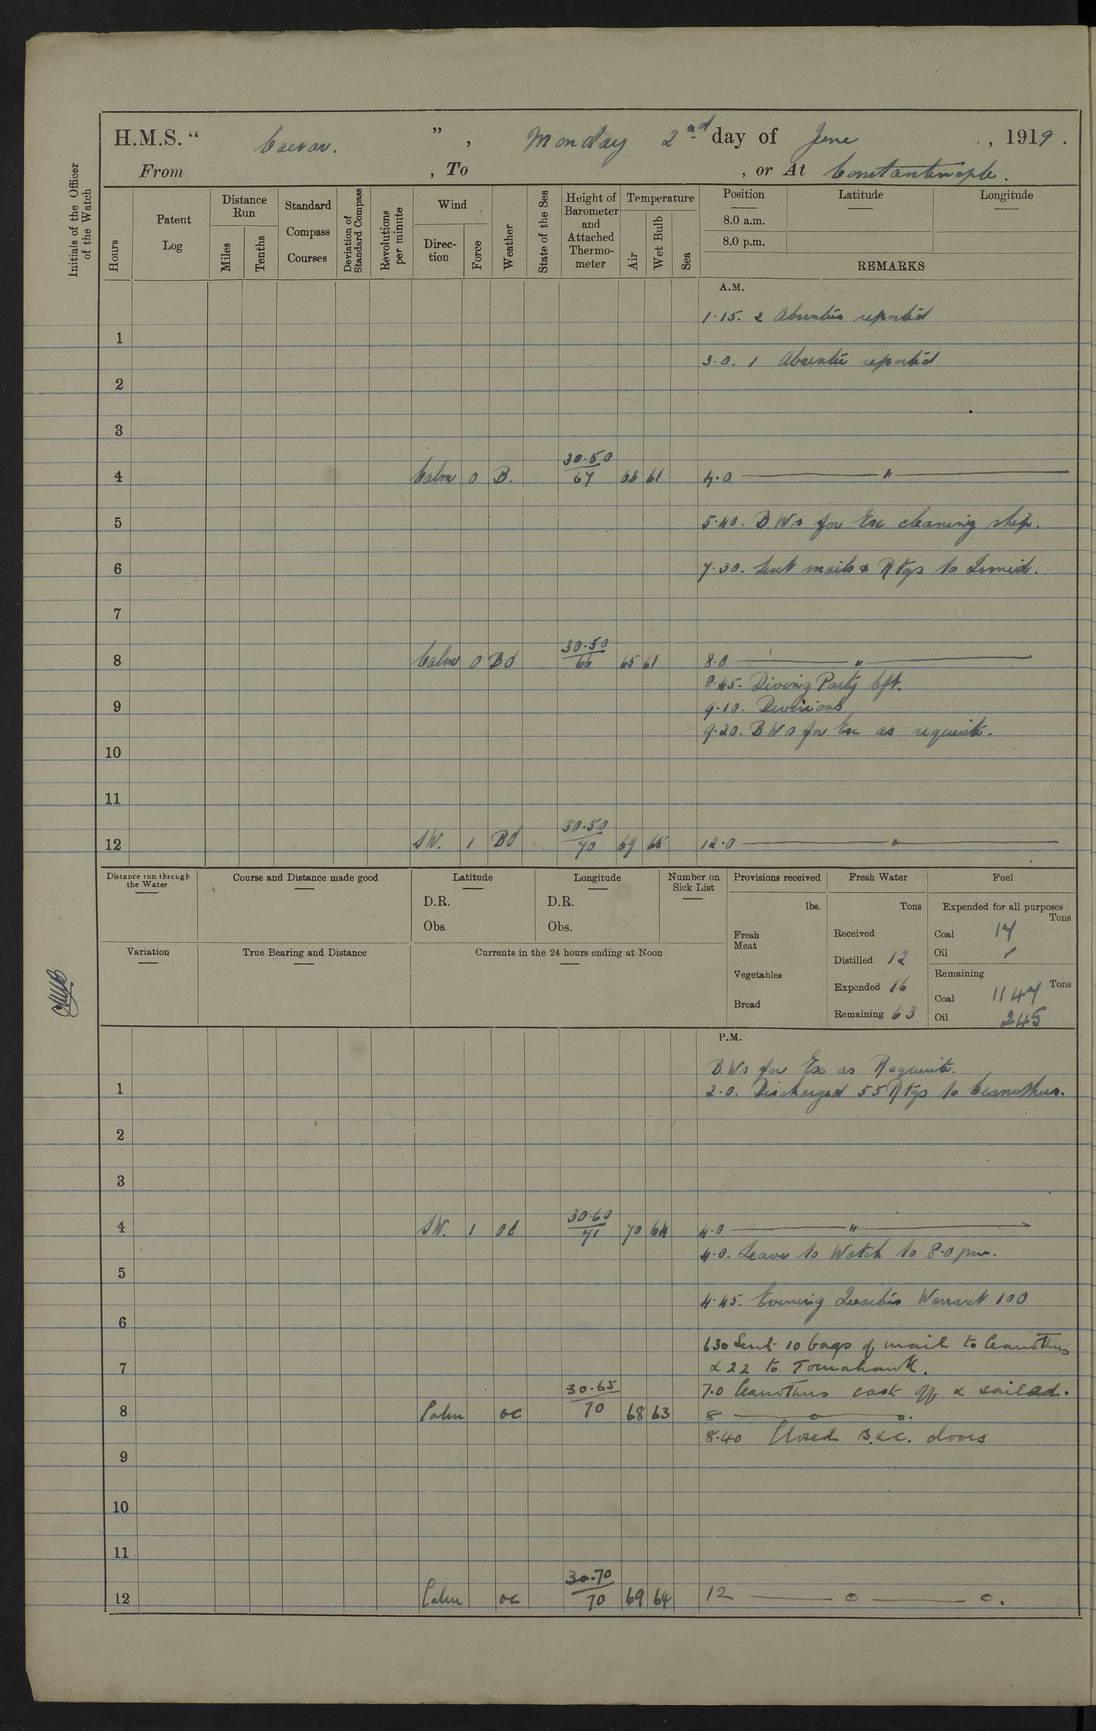 H.M.S. " Caesar. " , Monday 2nd day of June , 1919.
From , To , or At Constantinople.
Initials of the Officer of the Watch
Hours
Patent Log
Distance Run
Miles
Tenths
Standard Compass Courses
Deviation of Standard Compass
Revolutions per minute
Wind
Direc-tion
Force
Weather
State of the Sea
Height of Barometer and Attached Thermo-meter
Temperature
Air
Wet Bulb
Sea
Position Latitude Longitude
8.0 a.m.
8.0 p.m.
REMARKS
A.M.
1.15. 2 Absentees reported
1
3.0. 1 Absentee reported
2
3
4 Calm 0 B. 30.50/67 66 61 4.0 — " —
5 5.40. B Ws for Exc cleaning ship.
6 7.30. Sent mails & Rtgs to Ismid.
7
8 Calm 0 Bd 30.50/66 65 61 8.0 — " —
8.45. Diving Party left.
9 9.10. Divisions
9.20. B Ws for Exc as requisite.
10
11
12 SW. 1 Bd 30.50/70 69 65 12.0 — " —
Distance run through the Water
Course and Distance made good
Latitude
D.R.
Obs.
Longitude
D.R.
Obs.
Number on Sick List
Variation
True Bearing and Distance
Currents in the 24 hours ending at Noon
Provisions received
lbs.
Fresh Meat
Vegetables
Bread
Fresh Water
Tons
Received
Distilled 12
Expended 16
Remaining 63
Fuel
Expended for all purposes
Tons
Coal 17
Oil
Remaining
Tons
Coal 1147
Oil 245
P.M.
B.Ws for Ex as Requisite.
1 2.0. Discharged 55 Rtgs to Ceanothus.
2
3
4 SW. 1 oc 30.60/71 70 64 4.0 — " —
4.0. Leave to Watch to 8.0 pm.
5
4.45. Evening Quarters Warrant 100
6
630 Sent 10 bags of mail to Ceanothus
7 & 22 to Tomahawk.
7.0 Ceanothus cast off & sailed.
8 Calm oc 30.65/70 68 63 8 — o — o.
8.40 Closed B.&C. doors
9
10
11
12 Calm oc 30.70/70 69 64 12 — o — o.